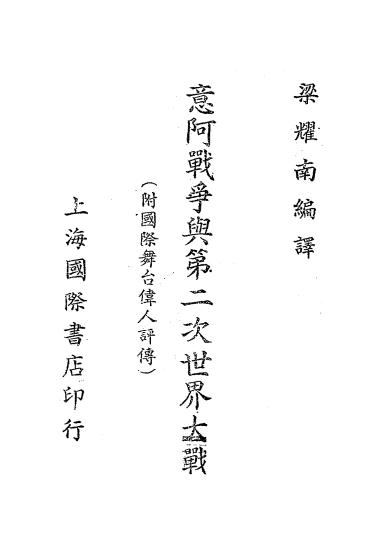 梁耀南編譯
意阿戰爭與第二次世界大戰
(附國際舞台偉人評傳)
上海國際書店印行